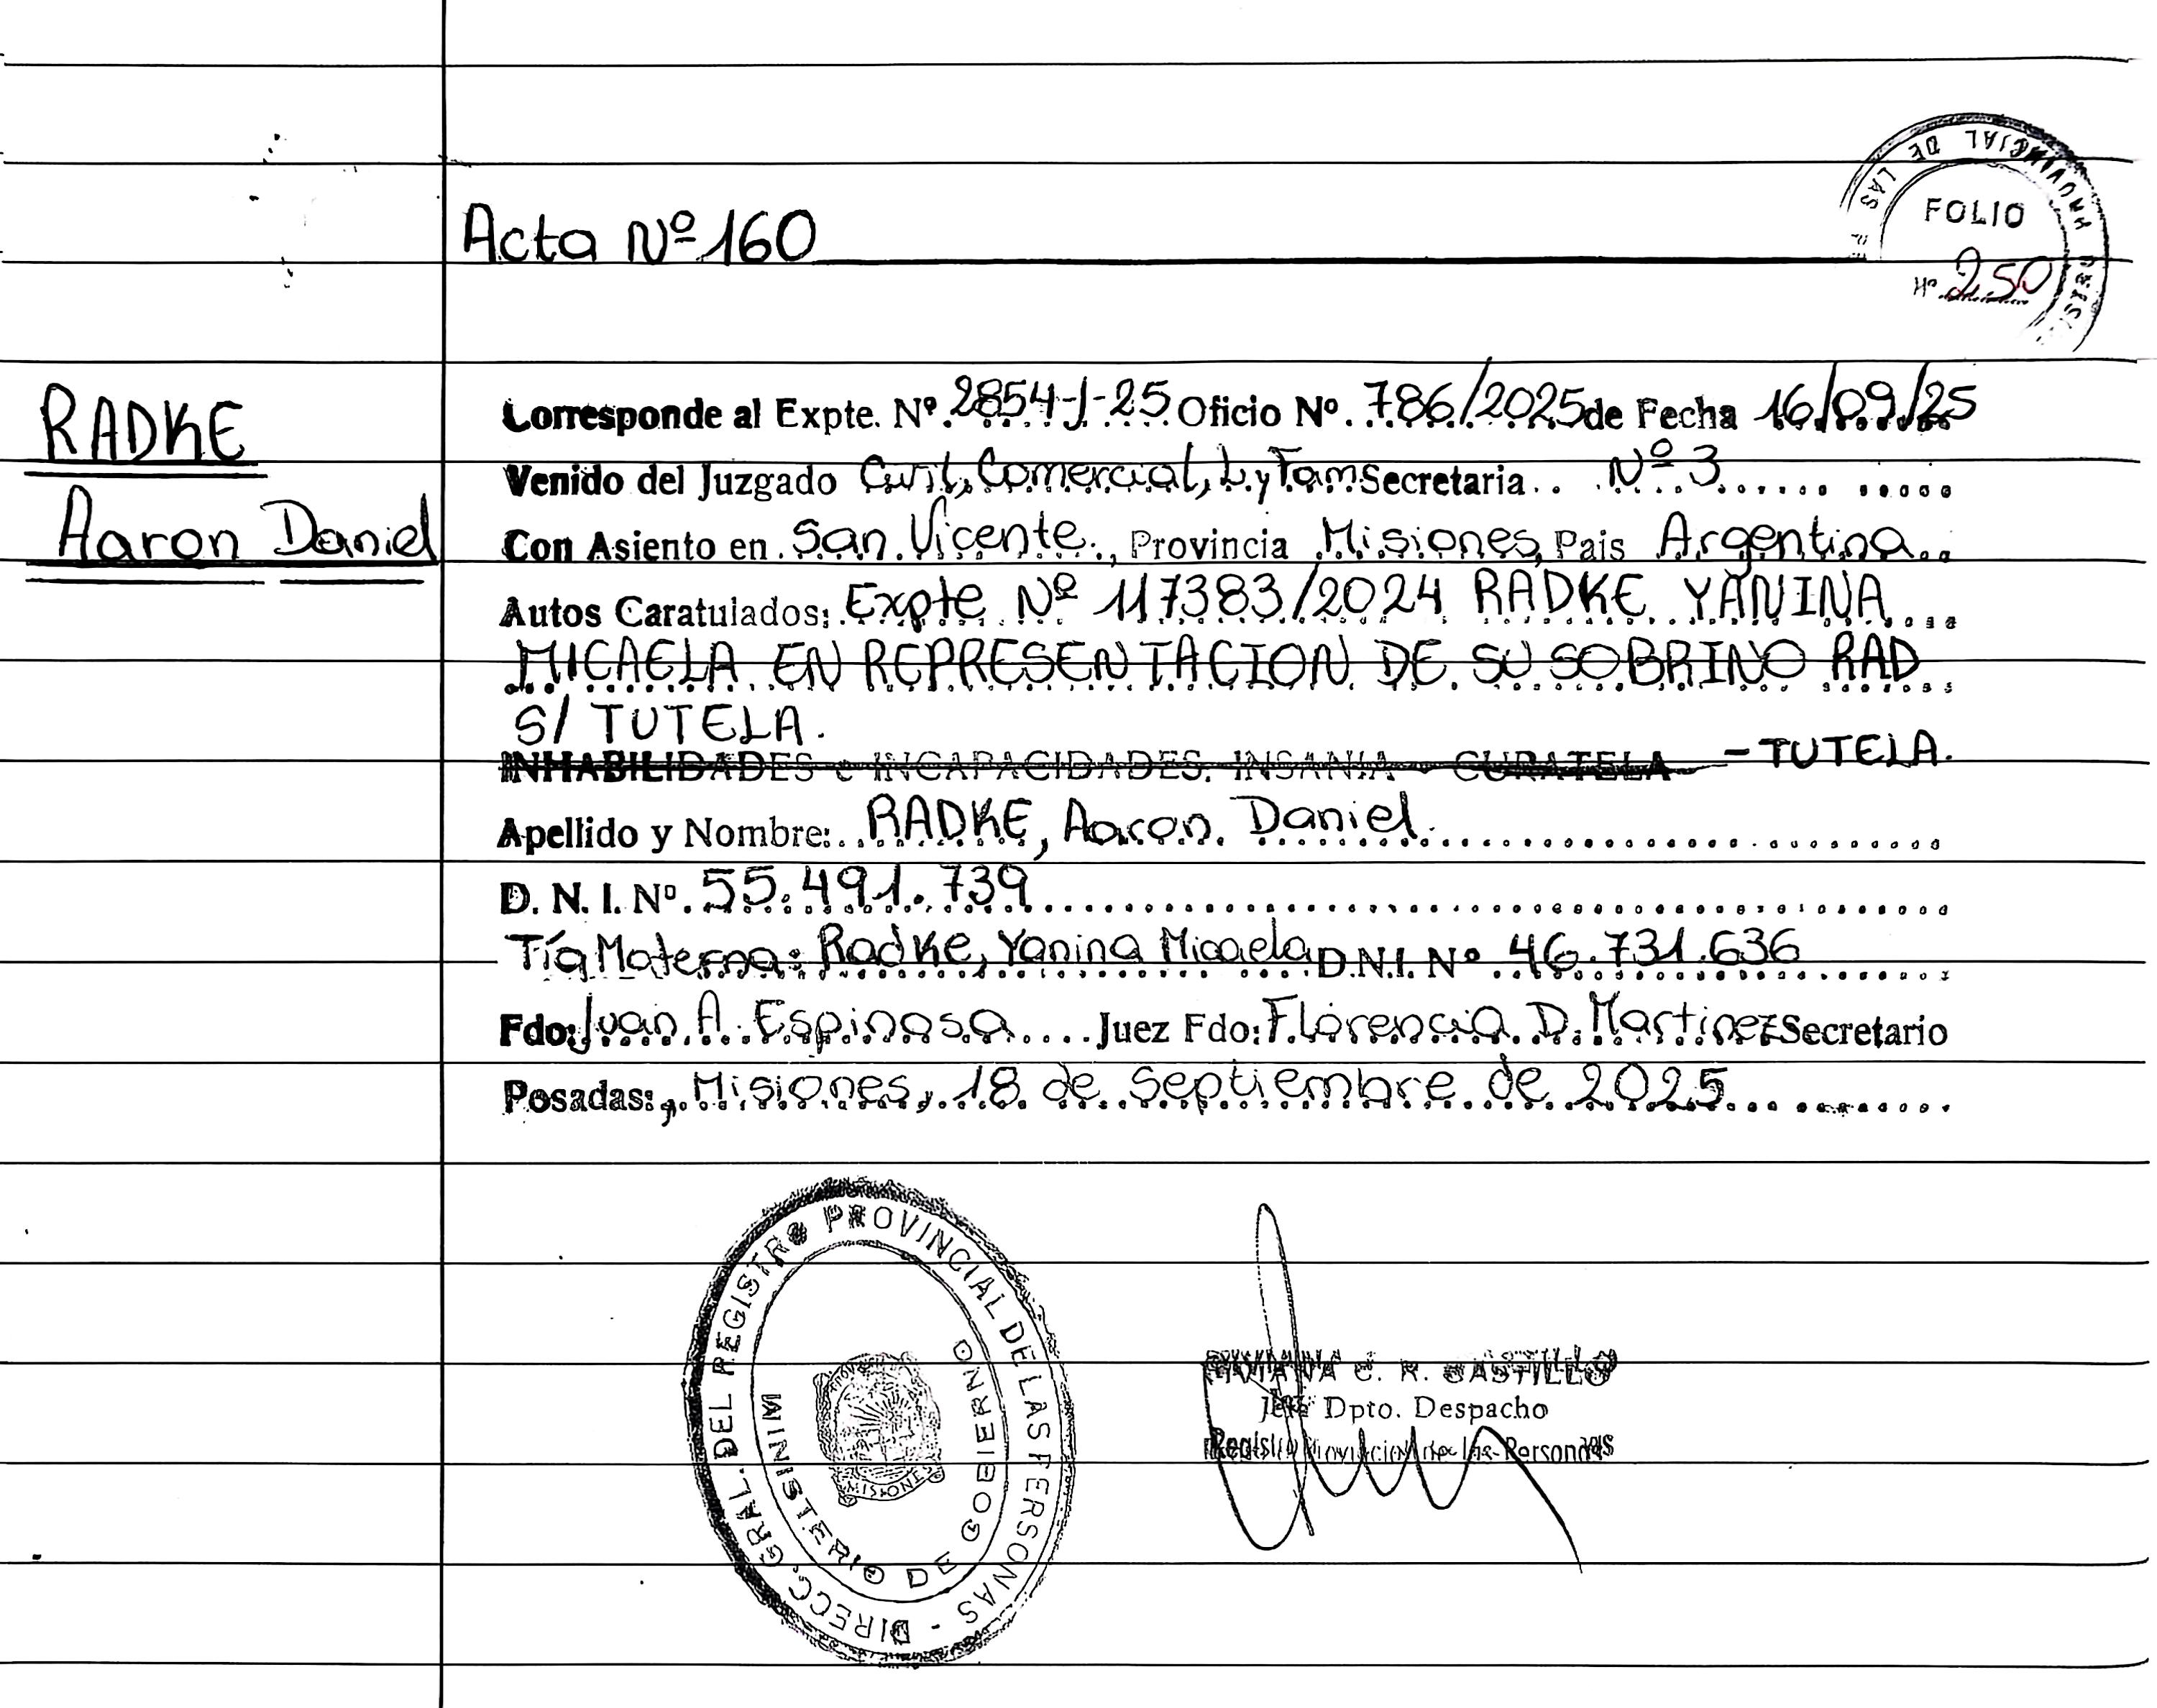 Acta Nº 160
FOLIO
Nº 250
RADKE
Aaron Daniel
Corresponde al Expte. Nº 2854-J-25 Oficio Nº. 786/2025 de Fecha 16/09/25
Venido del Juzgado Civil, Comercial, L. y Fam Secretaria Nº 3
Con Asiento en San Vicente, Provincia Misiones, Pais Argentina
Autos Caratulados: Expte Nº 117383/2024 RADKE YANINA
MICAELA EN REPRESENTACION DE SU SOBRINO RAD
S/ TUTELA.
INHABILIDADES e INCAPACIDADES. INSANIA - CURATELA - TUTELA.
Apellido y Nombre: RADKE, Aaron Daniel
D. N. I. Nº. 55.491.739
Tía Materna: Radke, Yanina Micaela D.N.I. Nº 46.731.636
Fdo: Juan A. Espinosa Juez Fdo: Florencia D. Martinez Secretario
Posadas:, Misiones, 18 de Septiembre de 2025
DIRECC. GRAL. DEL REGISTRO PROVINCIAL DE LAS PERSONAS -
MINISTERIO DE GOBIERNO
MISIONES
C. R. CASTILLO
Jefe Dpto. Despacho
Registro Provincial de las Personas